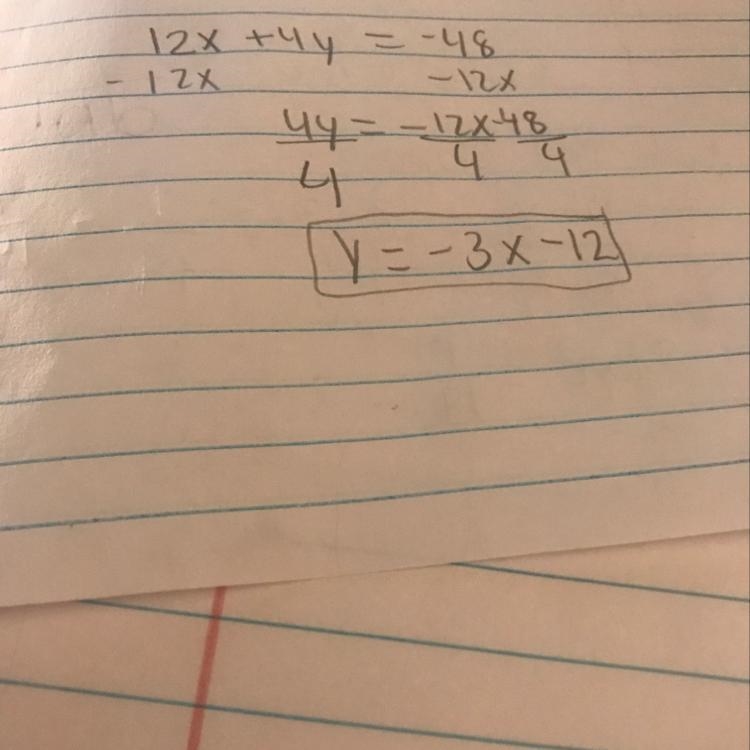 12x + 4y = -48
- 12x -12x
4y = -12x-48
4 4 4
y = -3x-12